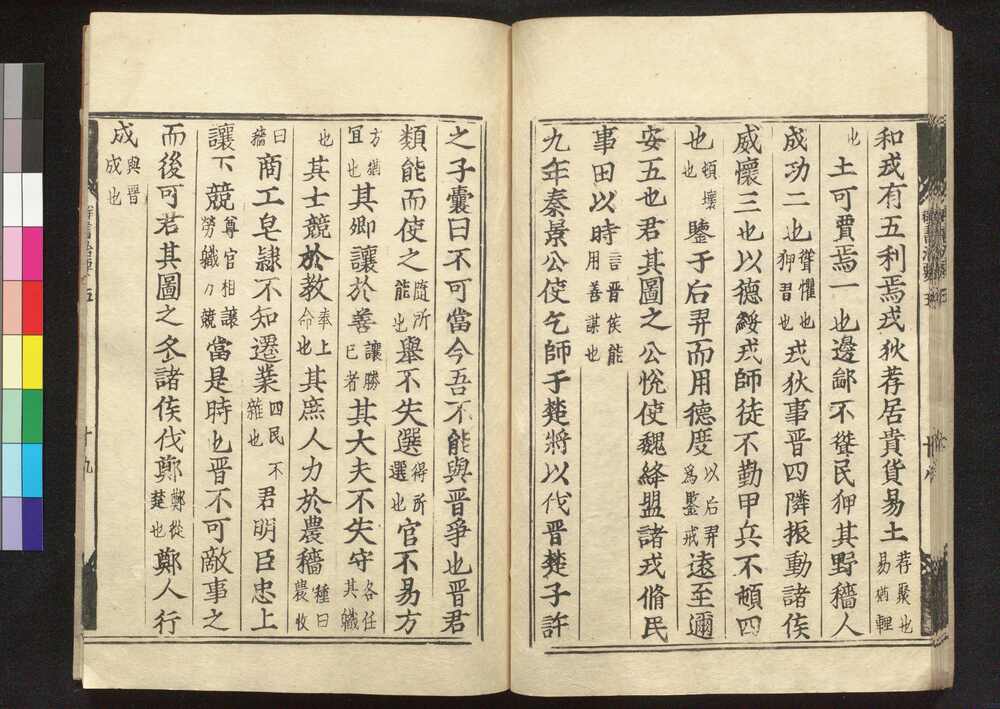 和戎有五利焉戎狄荐居貴貨易土荐聚也易猶輕
也土可賈焉一也邊鄙不聳民狎其野穡人
成功二也聳懼也狎習也戎狄事晉四隣振動諸侯
威懷三也以德綏戎師徒不勤甲兵不頓四
也頓壞也鑒于后羿而用德度以后羿為鑒戒遠至邇
安五也君其圖之公悅使魏絳盟諸戎脩民
事田以時言晉侯能用善謀也
九年秦景公使乞師于楚將以伐晉楚子許
之子囊曰不可當今吾不能與晉爭也晉君
類能而使之隨所能也舉不失選得所選也官不易方
方猶宜也其卿讓於善讓勝己者其大夫不失守各任其職
也其士競於教奉上命也其庶人力於農穡種曰農收
曰穡商工皂隸不知遷業四民不雜也君明臣忠上
讓下競尊官相讓勞職々競當是時也晉不可敵事之
而後可君其圖之冬諸侯伐鄭鄭從楚也鄭人行
成與晉成也